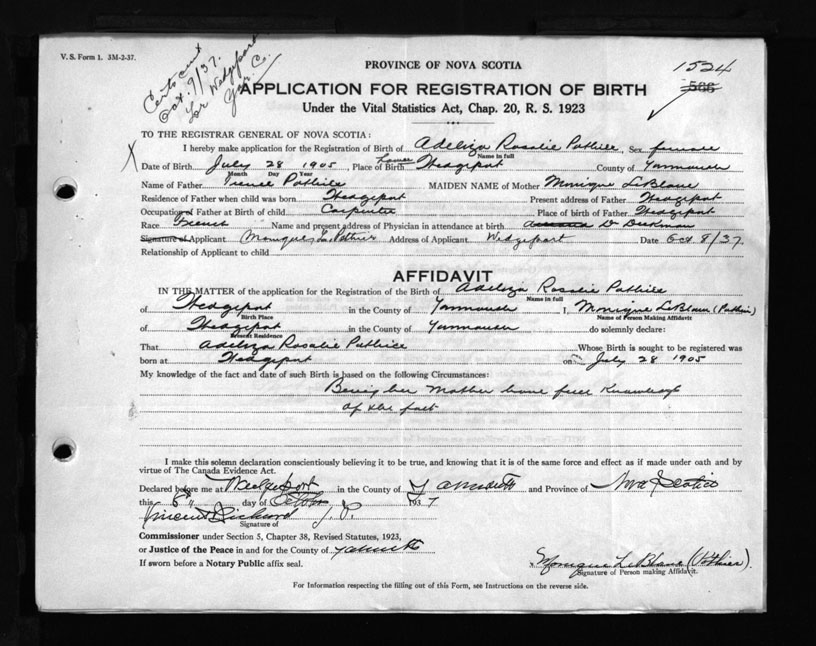 V. S. Form 1. 3M-2-37.
Oct. 9/37.
for Wedgeport
PROVINCE OF NOVA SCOTIA
1524
566
APPLICATION FOR REGISTRATION OF BIRTH
Under the Vital Statistics Act, Chap. 20, R. S. 1923
TO THE REGISTRAR GENERAL OF NOVA SCOTIA:
I hereby make application for the Registration of Birth of Adeliza Rosalie Pothier, Sex female
Name in full
X Date of Birth July 28 1905, Place of Birth Lower Wedgeport County of Yarmouth
Month Day Year
Name of Father Pothier MAIDEN NAME of Mother Monique LeBlanc
Residence of Father when child was born Wedgeport Present address of Father Wedgeport
Occupation of Father at Birth of child Carpenter Place of birth of Father Wedgeport
Race French Name and present address of Physician in attendance at birth Dr
Signature of Applicant Monique L. Pothier Address of Applicant Wedgeport Date Oct 8/37.
Relationship of Applicant to child
AFFIDAVIT
IN THE MATTER of the application for the Registration of the Birth of Adeliza Rosalie Pothier
Name in full
of Wedgeport in the County of Yarmouth I, Monique LeBlanc (Pothier)
Birth Place Name of Person Making Affidavit
of Wedgeport in the County of Yarmouth do solemnly declare:
Present Residence
That Adeliza Rosalie Pothier Whose Birth is sought to be registered was
born at Wedgeport on July 28 1905
My knowledge of the fact and date of such Birth is based on the following Circumstances:
Being her Mother have full Knowledge
of the fact
I make this solemn declaration conscientiously believing it to be true, and knowing that it is of the same force and effect as if made under oath and by
virtue of The Canada Evidence Act.
Declared before me at Wedgeport in the County of Yarmouth and Province of Nova Scotia
this 8th day of October 1937
Vincent J. P.
Signature of
Commissioner under Section 5, Chapter 38, Revised Statutes, 1923,
or Justice of the Peace in and for the County of Yarmouth
If sworn before a Notary Public affix seal.
x Monique LeBlanc (Pothier).
Signature of Person making Affidavit.
For Information respecting the filling out of this Form, see Instructions on the reverse side.